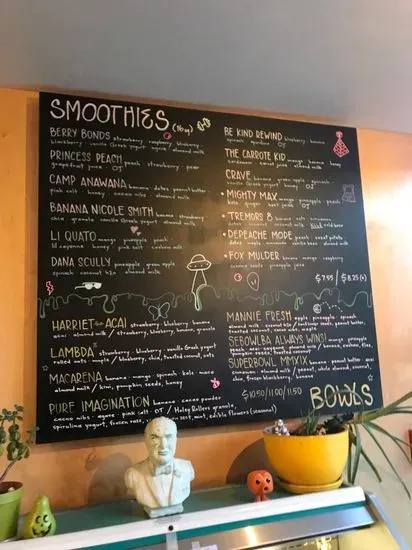 SMOOTHIES (16oz)
BERRY BONDS strawberry, raspberry, blueberry,
blackberry, vanilla Greek yogurt, agave, almond milk
PRINCESS PEACH peach, strawberry, pear,
grapefruit juice, OJ
CAMP ANAWANA banana, dates, peanut butter,
pink salt, honey, cacao nibs, almond milk
BANANA NICOLE SMITH banana, strawberry,
chia, granola, vanilla Greek yogurt, almond milk
LI QUATO mango, pineapple, peach,
cayenne, honey, pink salt, cashew milk
DANA SCULLY pineapple, green apple,
spinach, coconut H2O, almond milk
BE KIND REWIND blueberry, banana,
spinach, spirulina, OJ
THE CARROTE KID mango, banana, honey,
cardamom, carrot juice, almond milk
CRAVE banana, green apple, spinach,
vanilla Greek yogurt, honey, OJ
• MIGHTY MAX mango, pineapple, peach,
kale, juice, OJ
• TREMORS 8 banana, oats, cinnamon,
dates, almond milk, cold brew
• DEPEACHE MODE peach, sweet potato,
dates, maple, cinnamon, vanilla bean, almond milk
• FOX MULDER banana, mango, raspberry,
seeds, pineapple juice
$7.55 / 8.25(•)
HARRIET the ACAI strawberry, blueberry, banana,
acai, almond milk / strawberry, blueberry, banana, granola
LAMBRA strawberry, blueberry, vanilla Greek yogurt,
rolled oats, maple / blueberry, chia, toasted coconut, oats
MACARENA banana, mango, spinach, kale, maca,
almond milk / kiwi, pumpkin seeds, honey
PURE IMAGINATION banana, cacao powder,
cacao nibs, agave, pink salt, OJ / Holey Rollers granola,
spirulina yogurt, zest, mint, edible flowers (seasonal)
MANNIE FRESH apple, pineapple, spinach,
almond milk, coconut H2O / seeds, peanut butter,
toasted coconut, cacao nibs, maple
SEBOWLBA ALWAYS WINS! mango, pineapple,
peach, almond milk / banana,
pumpkin seeds, toasted coconut
SUPERBOWL MMXIX banana, peanut butter, acai,
cinnamon, almond milk / peanut, whole almond, coconut,
chia, frozen blueberry, banana
$10.50/11.00/11.50
BOWLS